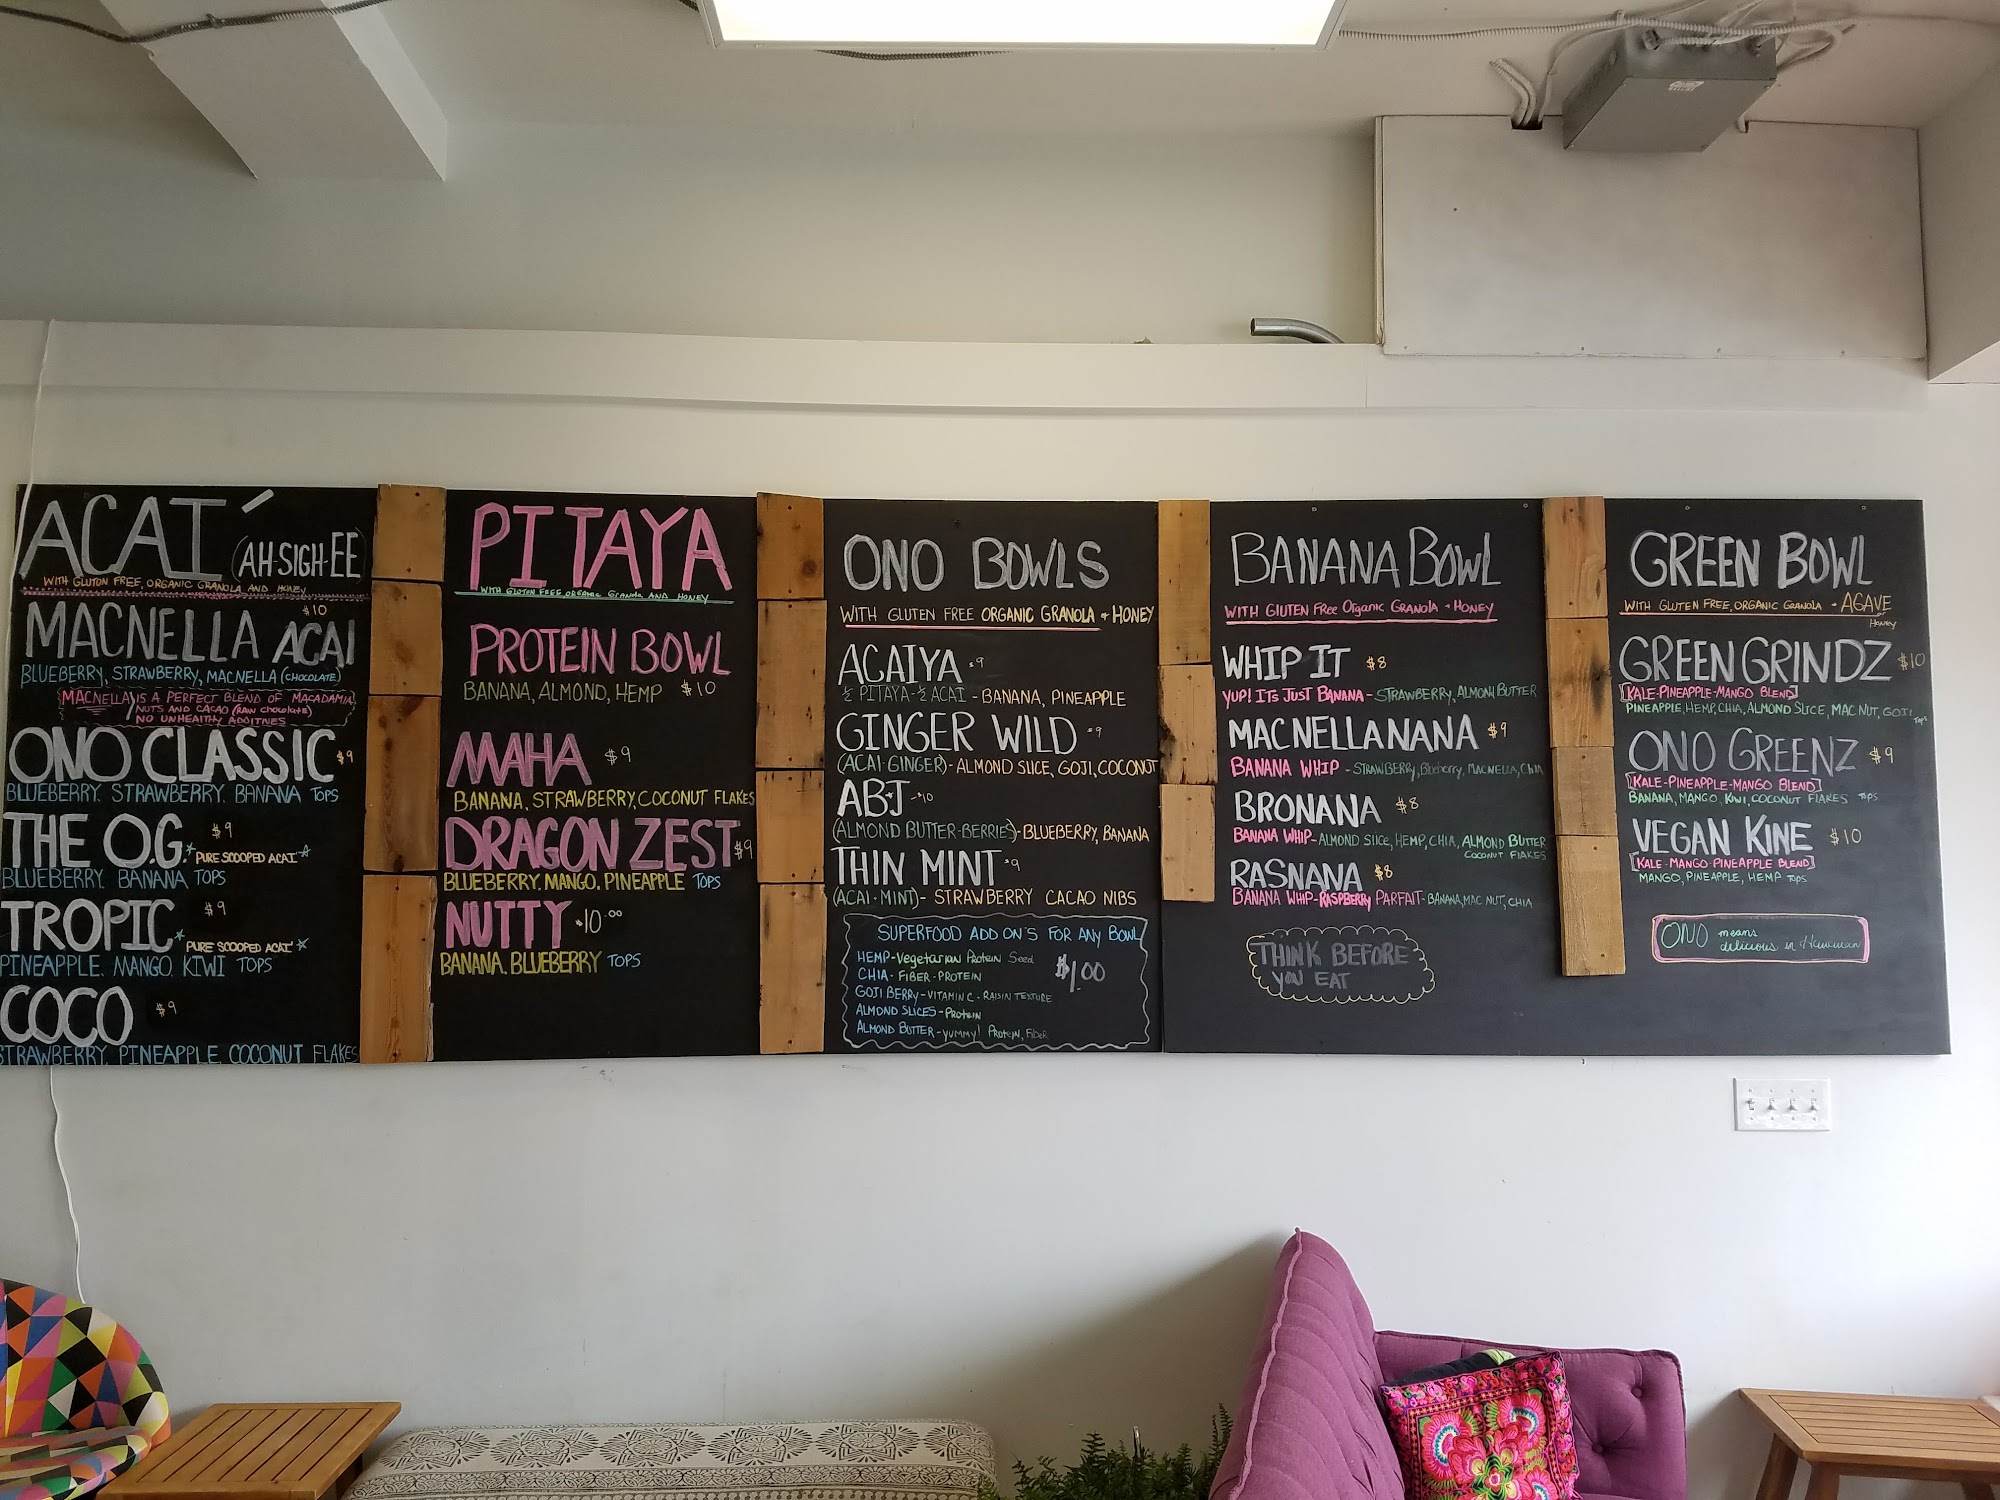 ACAÍ (AH-SIGH-EE)
WITH GLUTON FREE, ORGANIC GRANOLA AND HONEY
$10
MACNELLA ACAI
BLUEBERRY, STRAWBERRY, MACNELLA (CHOCOLATE)
MACNELLA IS A PERFECT BLEND OF MACADAMIA
NUTS AND CACAO (RAW CHOCOLATE)
NO UNHEALTHY ADDITIVES
ONO CLASSIC $9
BLUEBERRY. STRAWBERRY. BANANA TOPS
THE O.G. $9
*PURE SCOOPED ACAI*
BLUEBERRY. BANANA TOPS
TROPIC $9
*PURE SCOOPED ACAI*
PINEAPPLE. MANGO. KIWI TOPS
COCO $9
STRAWBERRY. PINEAPPLE. COCONUT FLAKES
PITAYA
WITH GLUTON FREE, ORGANIC GRANOLA AND HONEY
PROTEIN BOWL
BANANA, ALMOND, HEMP $10
MAHA $9
BANANA, STRAWBERRY, COCONUT FLAKES
DRAGON ZEST $9
BLUEBERRY. MANGO. PINEAPPLE TOPS
NUTTY $10.00
BANANA. BLUEBERRY TOPS
ONO BOWLS
WITH GLUTEN FREE ORGANIC GRANOLA + HONEY
ACAIYA $9
½ PITAYA-½ ACAI - BANANA, PINEAPPLE
GINGER WILD $9
(ACAI-GINGER)- ALMOND SLICE, GOJI, COCONUT
ABJ -$10
(ALMOND BUTTER-BERRIES)- BLUEBERRY, BANANA
THIN MINT $9
(ACAI-MINT)- STRAWBERRY CACAO NIBS
SUPERFOOD ADD ON'S FOR ANY BOWL
HEMP-Vegetarian Protein Seed
$1.00
CHIA - FIBER - PROTEIN
GOJI BERRY - VITAMIN C - RAISIN TEXTURE
ALMOND SLICES - Protein
ALMOND BUTTER - YUMMY! Protein, Fiber
BANANA BOWL
WITH GLUTEN FREE Organic GRANOLA + HONEY
WHIP IT $8
YUP! ITS JUST BANANA - STRAWBERRY, ALMOND BUTTER
MACNELLANANA $9
BANANA WHIP - STRAWBERRY, Blueberry, MACNELLA, CHIA
BRONANA $8
BANANA WHIP- ALMOND SLICE, HEMP, CHIA, ALMOND BUTTER
COCONUT FLAKES
RASNANA $8
BANANA WHIP- RASPBERRY PARFAIT- BANANA, MAC NUT, CHIA
THINK BEFORE
YOU EAT
GREEN BOWL
WITH GLUTEN FREE, ORGANIC GRANOLA + AGAVE
or
HONEY
GREEN GRINDZ $10
[KALE-PINEAPPLE-MANGO BLEND]
PINEAPPLE, HEMP, CHIA, ALMOND SLICE, MAC NUT, GOJI TOPS
ONO GREENZ $9
[KALE-PINEAPPLE-MANGO BLEND]
BANANA, MANGO, KIWI, COCONUT FLAKES TOPS
VEGAN KINE $10
[KALE-MANGO-PINEAPPLE BLEND]
MANGO, PINEAPPLE, HEMP TOPS
ONO means
delicious in Hawaiian